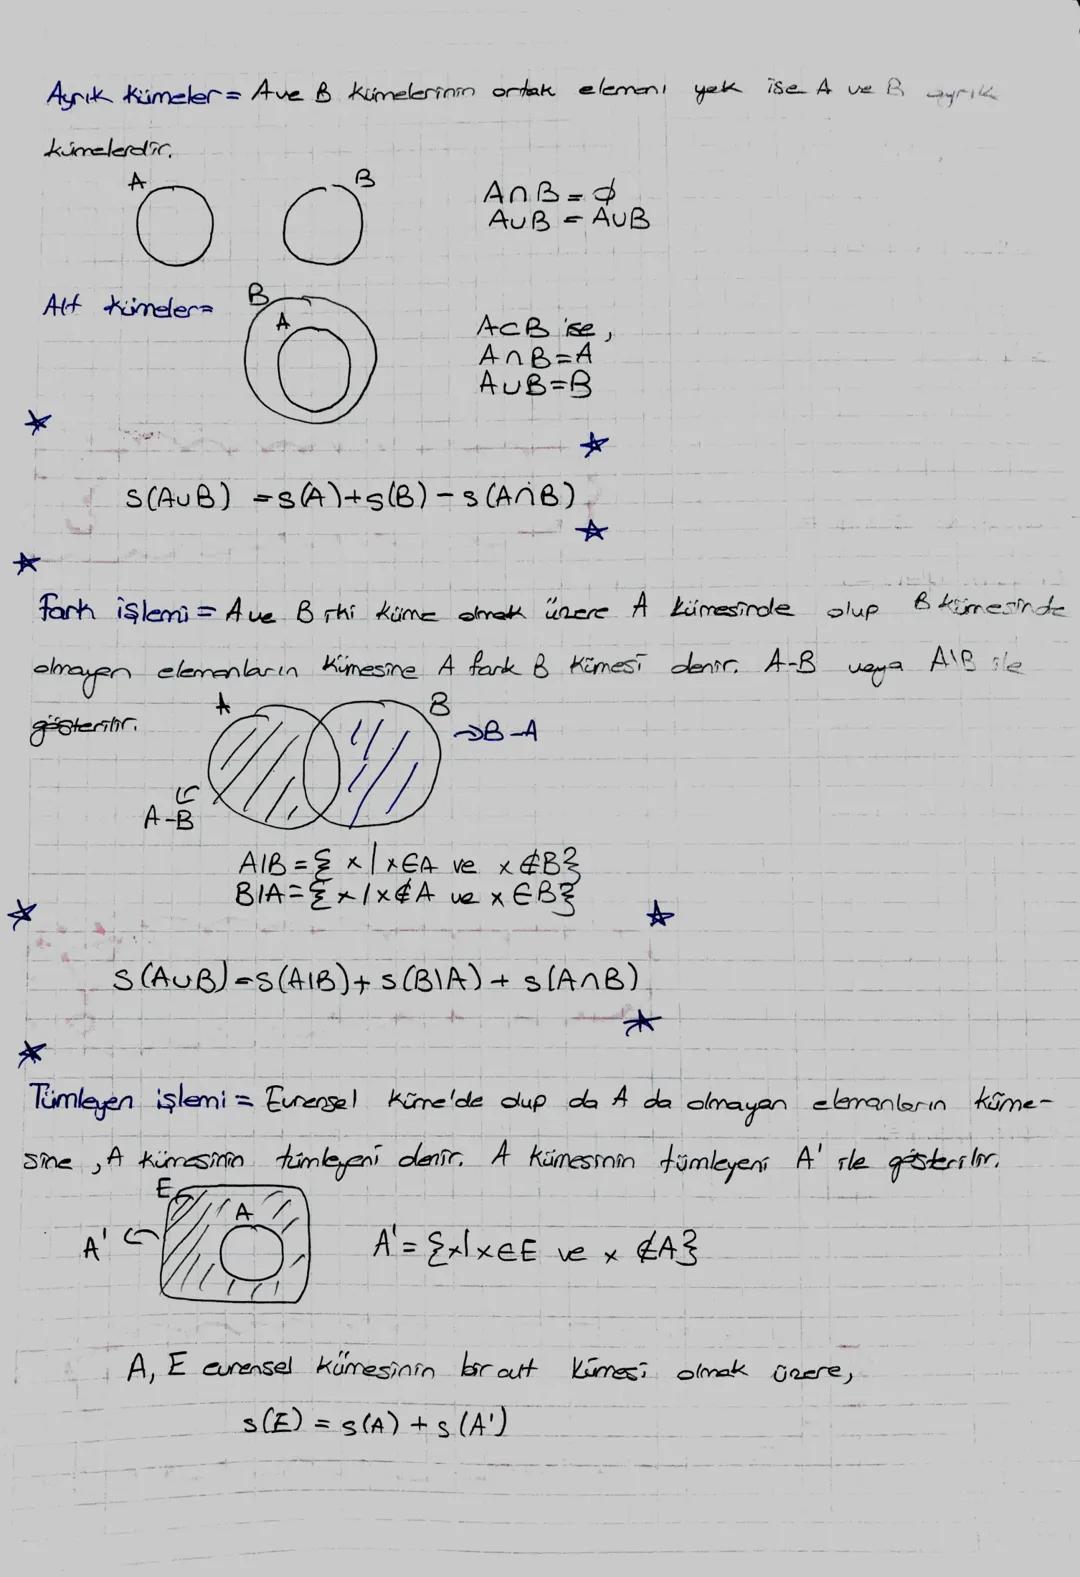 Ayrık Kümeler = A ve B Kümelerinin ortak elemanı yok ise A ve B ayrık
kümelerdir.
A B
A∩B = ∅
A∪B = A∪B
Alt Kümeler =
B
A
A⊂B ise,
A∩B=A
A∪B=B
s(A∪B) = s(A)+s(B) - s(A∩B)
Fark işlemi = A ve B iki Küme olmak üzere A kümesinde olup B kümesinde
olmayan elemanların Kümesine A fark B Kümesi denir. A-B veya A\B ile
gösterilir.
A B
→B-A
A-B
A\B = {x | x∈A ve x∉B}
B\A = {x | x∉A ve x∈B}
s(A∪B) = s(A\B) + s(B\A) + s(A∩B)
Tümleyen işlemi = Evrensel Küme'de olup da A da olmayan elemanların küme-
sine, A Kümesinin tümleyeni denir. A Kümesinin tümleyeni A' ile gösterilir.
E
A
A'
A' = {x | x∈E ve x∉A}
A, E evrensel Kümesinin bir alt Kümesi olmak üzere,
s(E) = s(A) + s(A')